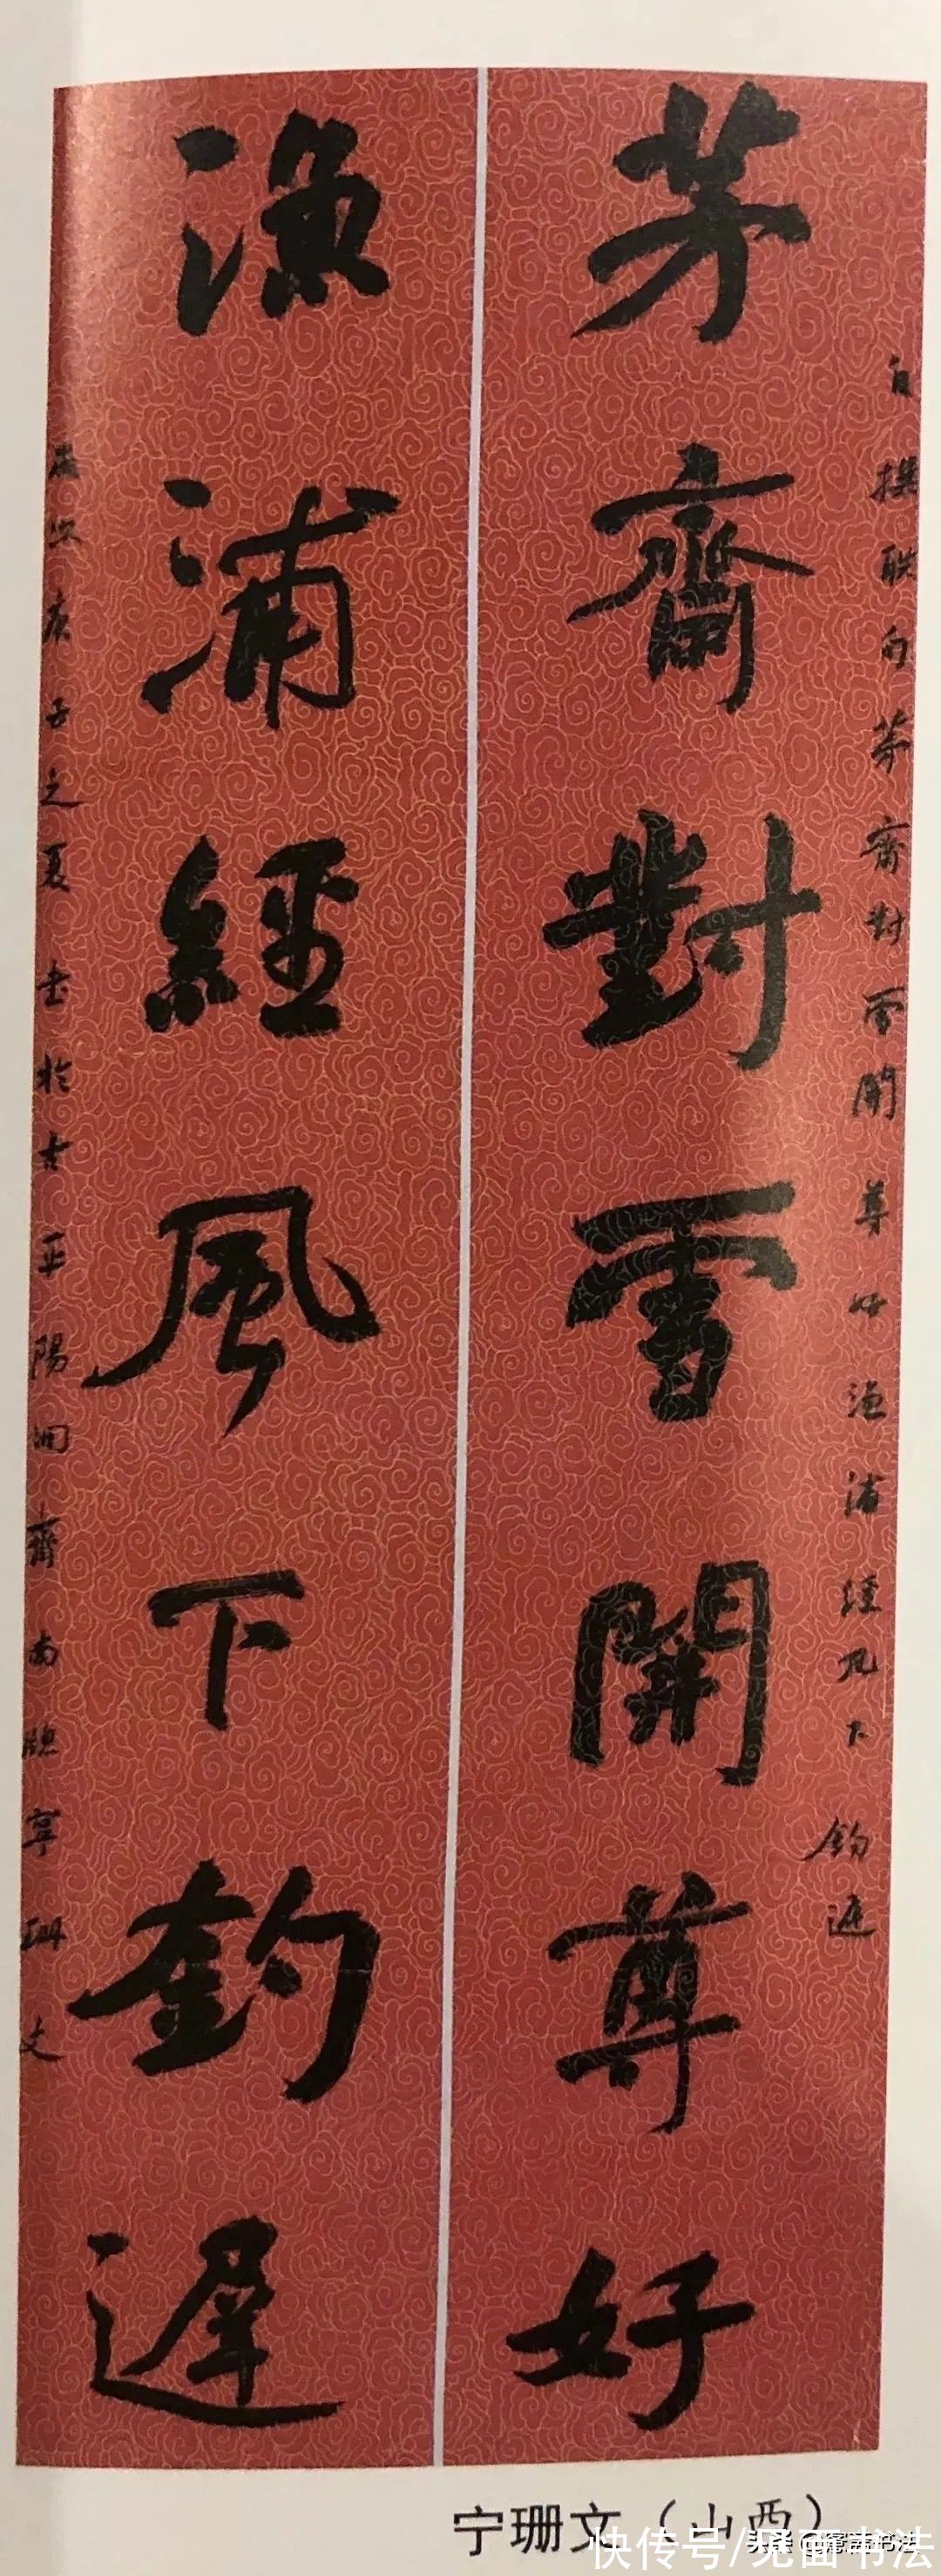 茅齋對雪開尊好
漁浦經風下釣遲
自撰聯句茅齋對雪開尊好漁浦經風下釣遲
庚子之夏書於古平陽 齋南牕寧珊文
宁珊文（山西）
快传号/见面书法